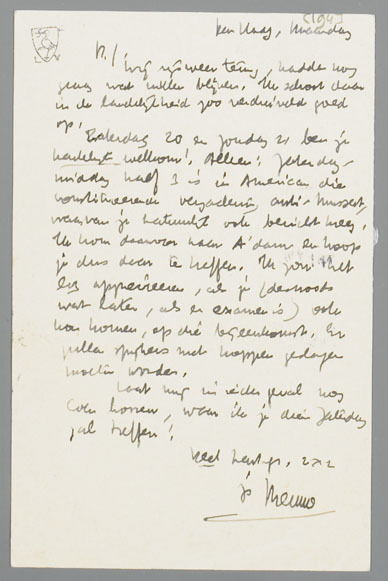 [194]
Den Haag, Maandag
B.! Wij zijn weer terug, hadden nog
graag wat willen blijven. Ik schoot daar
in de landelijkheid zoo verduiveld goed
op!
Zaterdag 20 en zondag 21 ben je
hartelijk welkom! Alleen: Zaterdag-
middag half 3 is in American die
constitueerende vergadering anti-Mussert,
waarvan je natuurlijk ook bericht kreeg.
Ik kom daarvoor naar A'dam en hoop
je dus daar te treffen. Ik zou het
erg apprecieeren, als je (desnoods
wat later, als er examen is) ook
kon komen, op die bijeenkomst. Er
zullen spijkers met koppen geslagen
moeten worden.
Laat mij in ieder geval nog
even hooren, waar ik je dien Zaterdag
zal treffen!
Veel hartelijks, 2x2
je Menno